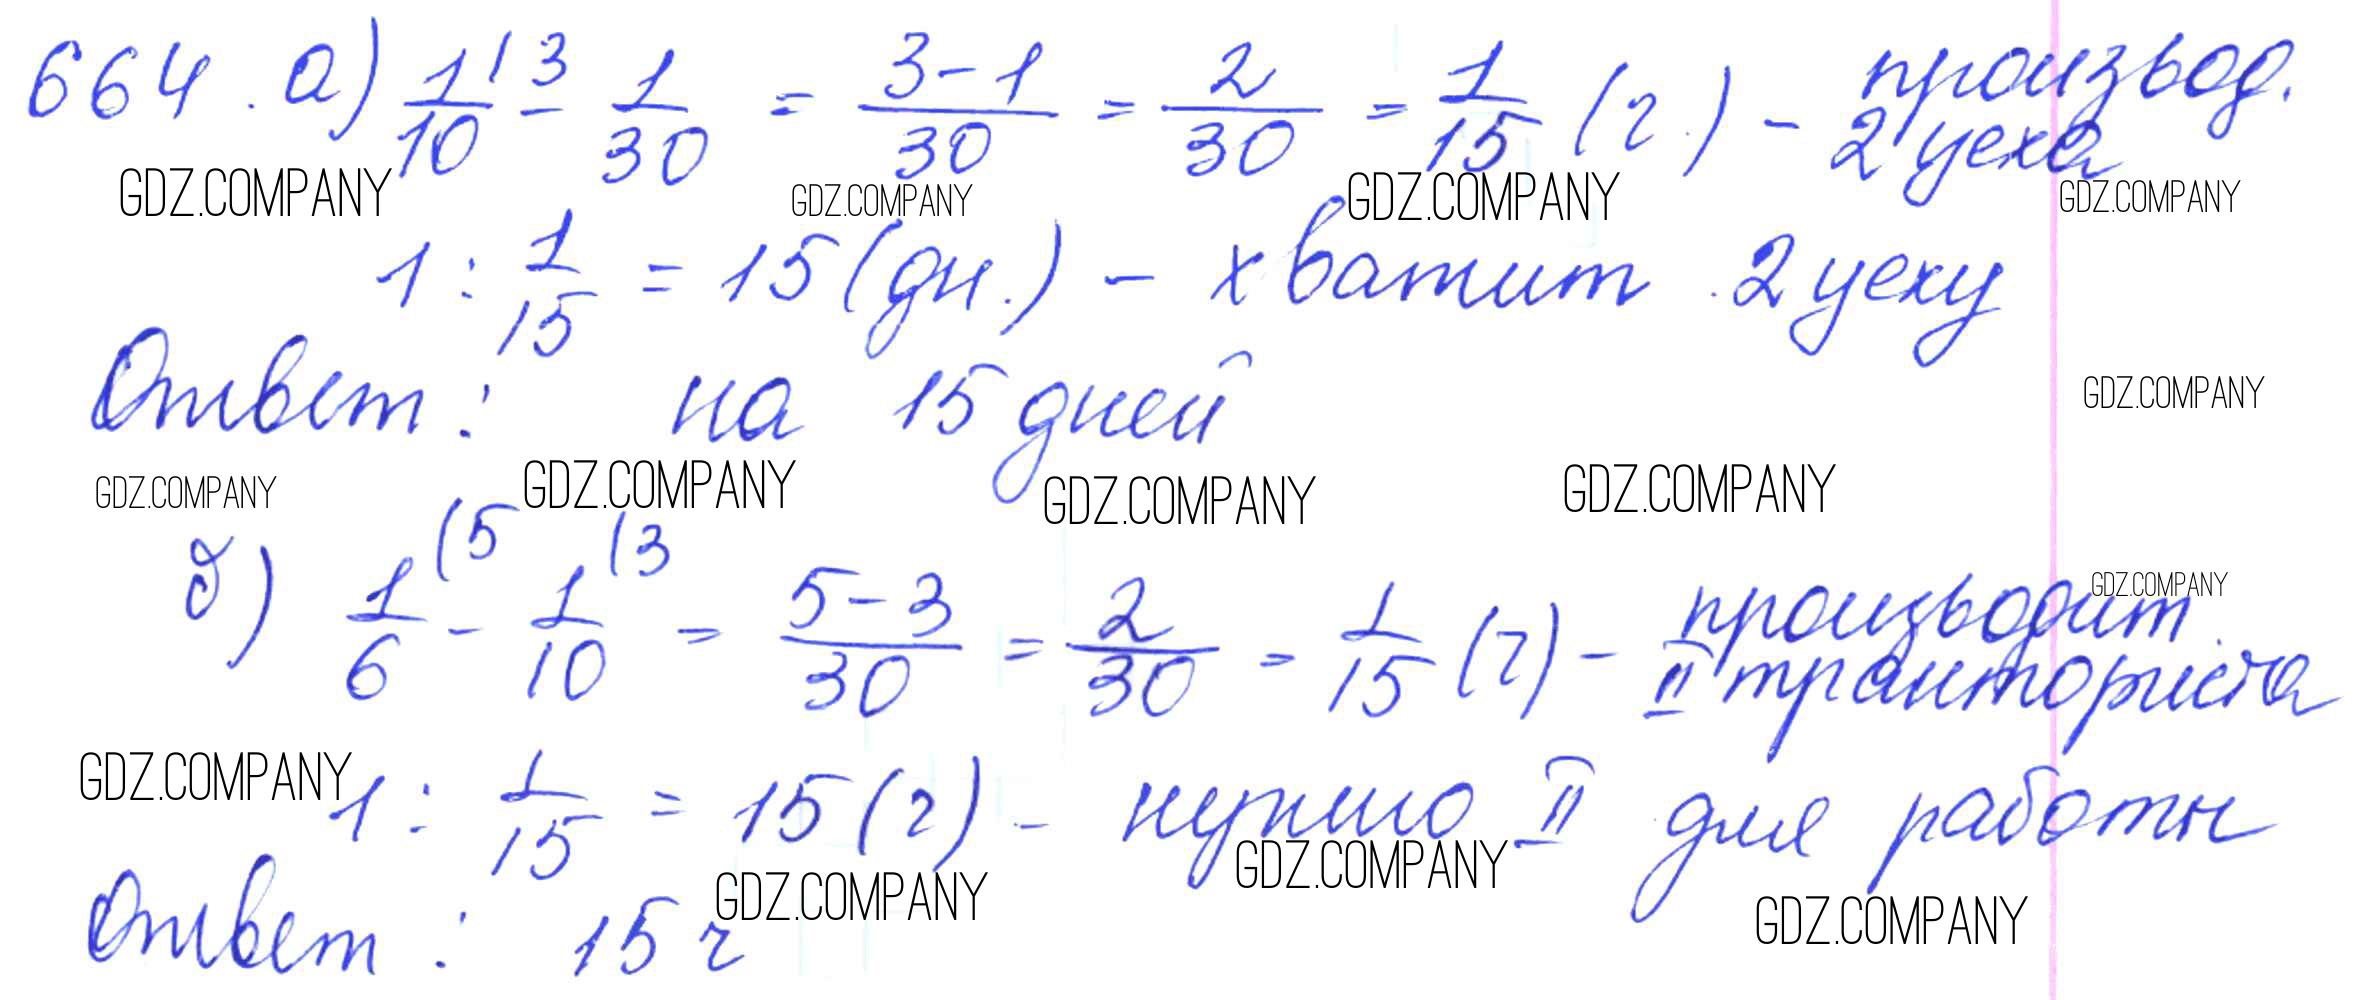 664. а) 1/10 (3 - 1/30 = 3-1/30 = 2/30 = 1/15 (г.) - производ. 2 цеха
GDZ.COMPANY GDZ.COMPANY GDZ.COMPANY GDZ.COMPANY
1 : 1/15 = 15 (дн.) - хватит 2 цеху
Ответ: на 15 дней
GDZ.COMPANY
GDZ.COMPANY GDZ.COMPANY GDZ.COMPANY GDZ.COMPANY
б) 1/6 (5 - 1/10 (3 = 5-3/30 = 2/30 = 1/15 (г) - производит II тракториста
GDZ.COMPANY
GDZ.COMPANY
1 : 1/15 = 15 (г) - нужно II для работы
GDZ.COMPANY GDZ.COMPANY GDZ.COMPANY
Ответ: 15 г